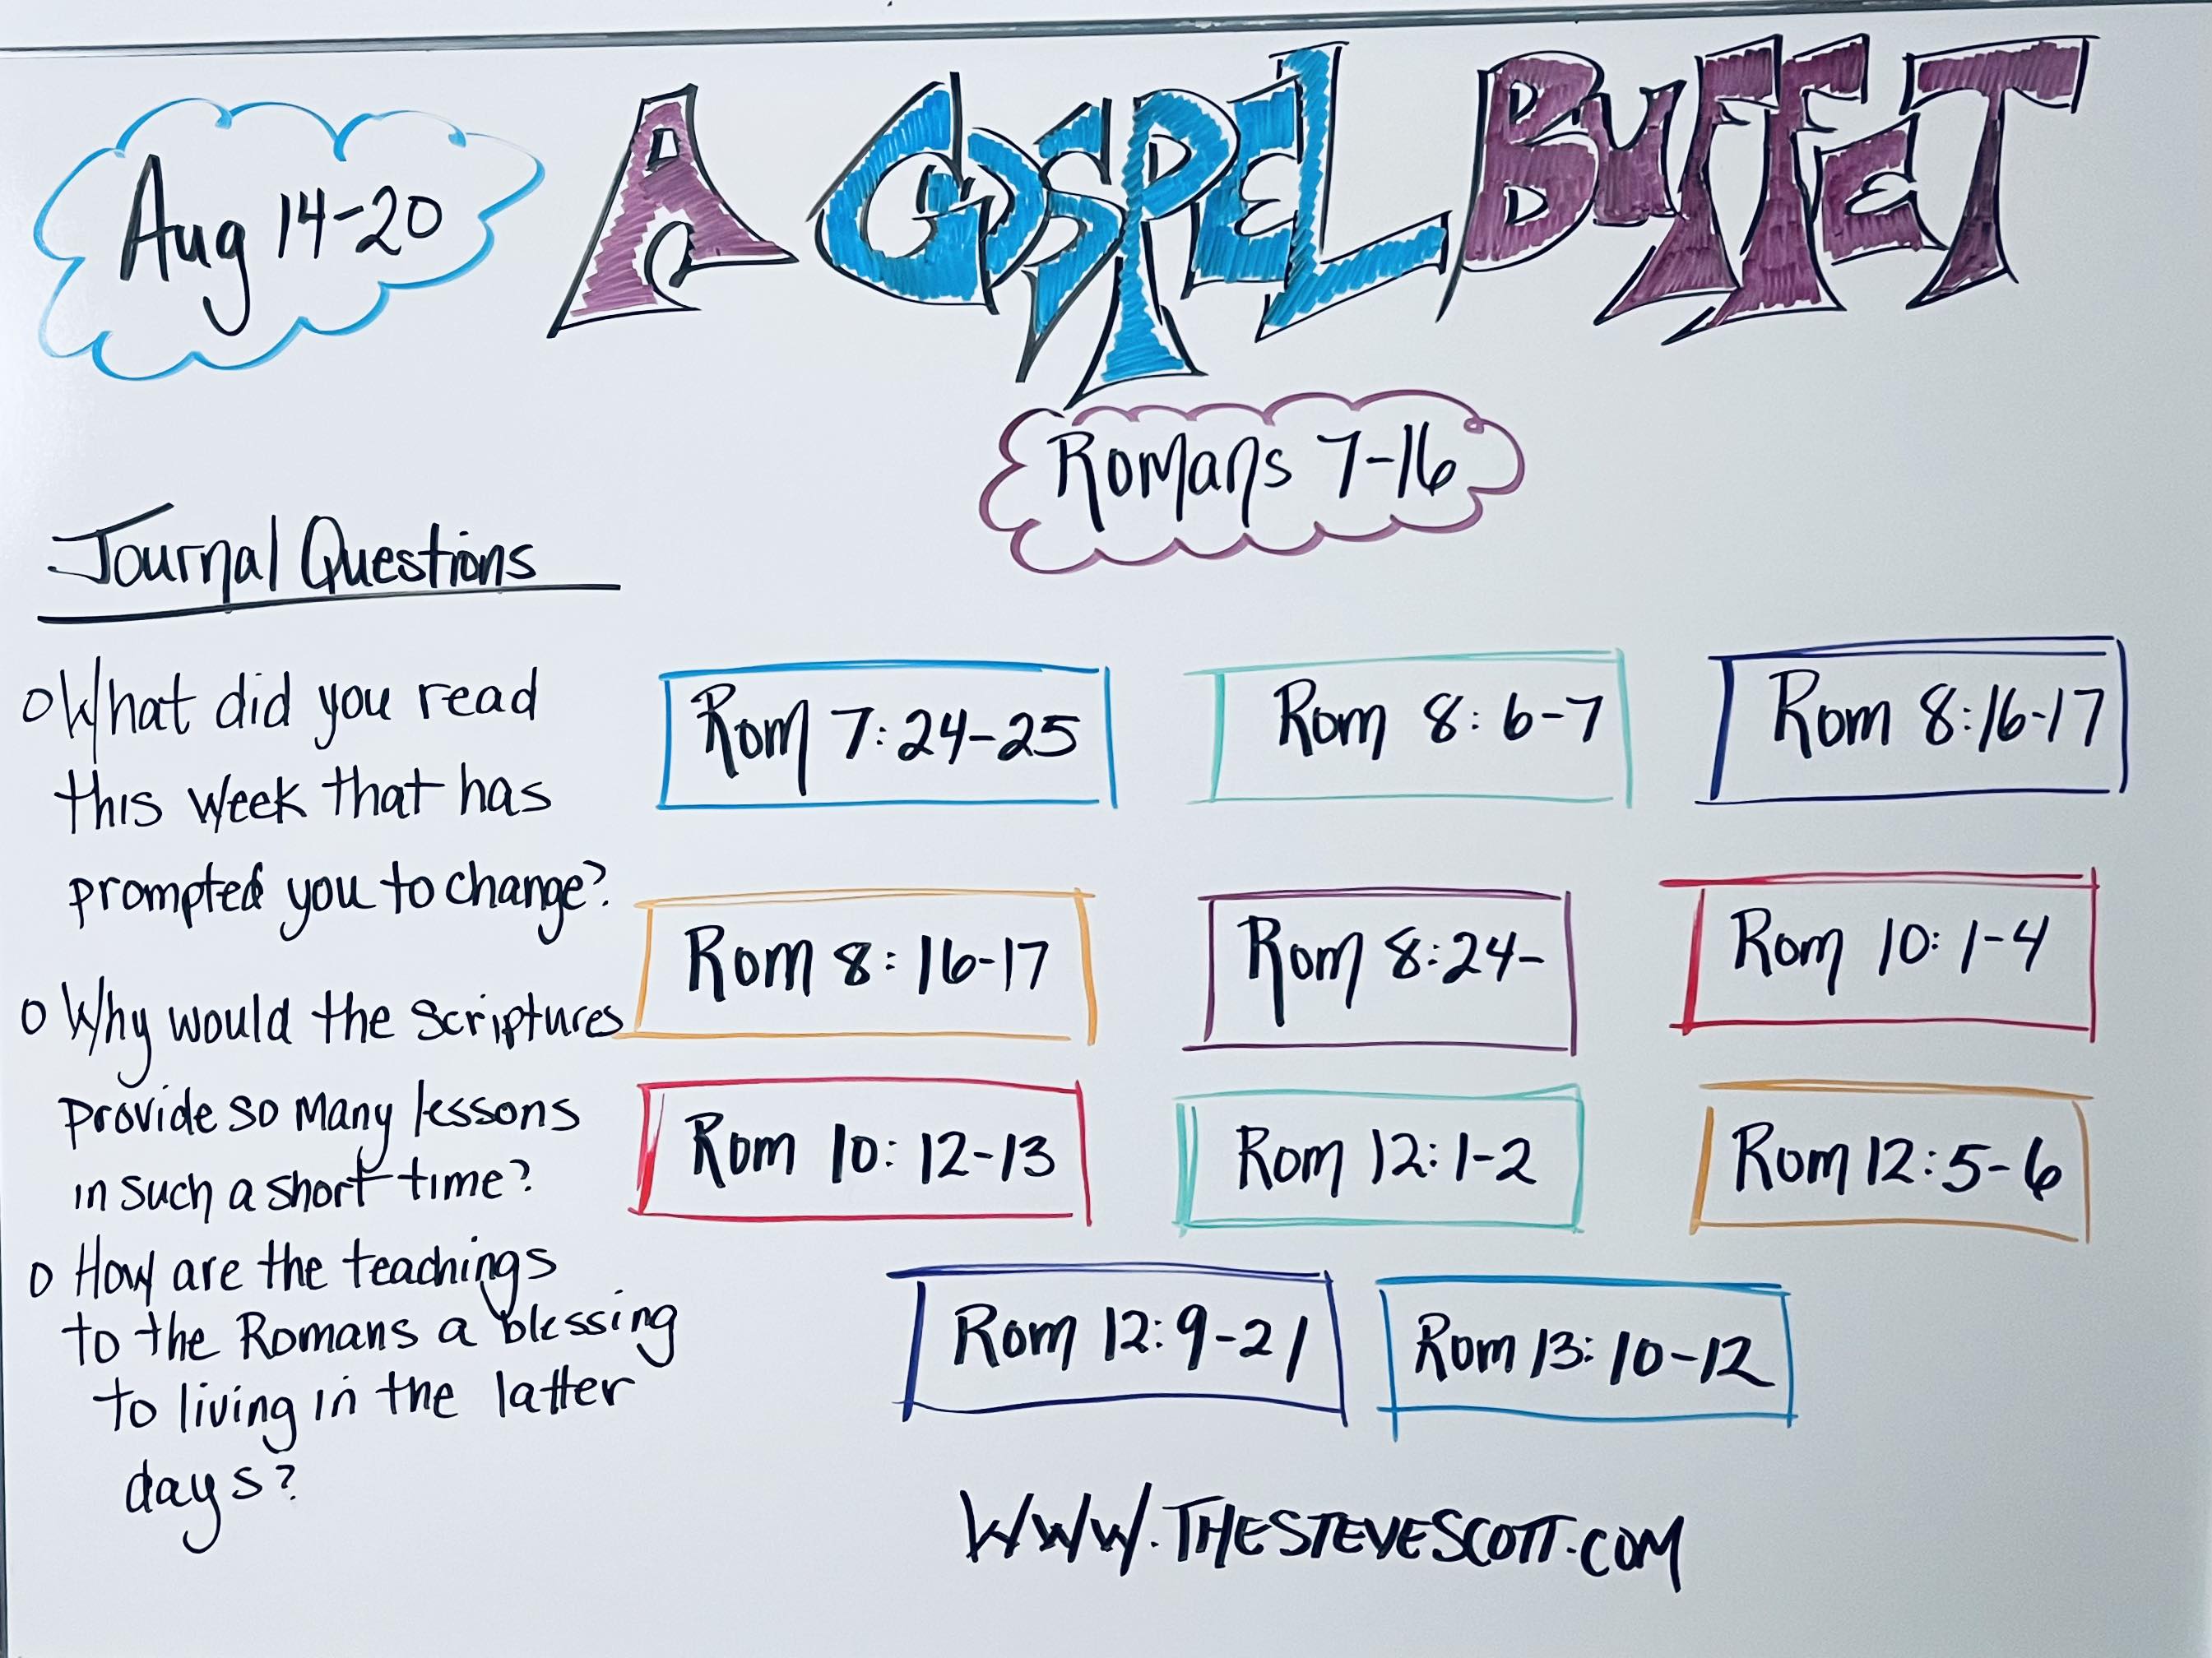 Aug 14-20
A GOSPEL BUFFET
Romans 7-16
Journal Questions
o What did you read
this week that has
prompted you to change?
o Why would the scriptures
provide so many lessons
in such a short time?
o How are the teachings
to the Romans a blessing
to living in the latter
days?
Rom 7:24-25
Rom 8:6-7
Rom 8:16-17
Rom 8:16-17
Rom 8:24-
Rom 10:1-4
Rom 10:12-13
Rom 12:1-2
Rom 12:5-6
Rom 12:9-21
Rom 13:10-12
WWW.THESTEVESCOTT.COM